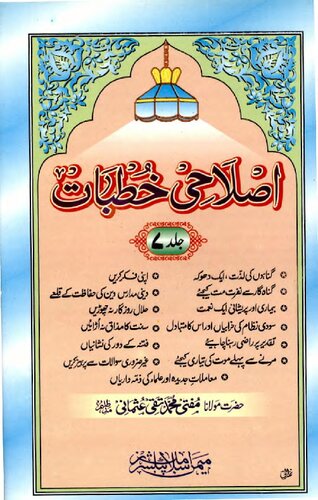 اصلاحی خطبات
جلد ۷
گناہوں کی لذت، ایک دھوکہ
اپنی فکر کریں
گناہ گار سے نفرت مت کیجئے
دینی مدارس دین کی حفاظت کے قلعے
بیماری اور پریشانی ایک نعمت
حلال روزگار نہ چھوڑیں
سودی نظام کی خرابیاں اور اس کا متبادل
سنت کا مذاق نہ اڑائیں
تقدیر پر راضی رہنا چاہیے
فتنہ کے دور کی نشانیاں
مرنے سے پہلے موت کی تیاری کیجئے
غیر ضروری سوالات سے پرہیز کریں
معاملات جدیدہ اور علماء کی ذمہ داریاں
حضرت مولانا مفتی محمد تقی عثمانی
میمن اسلامک پبلشرز